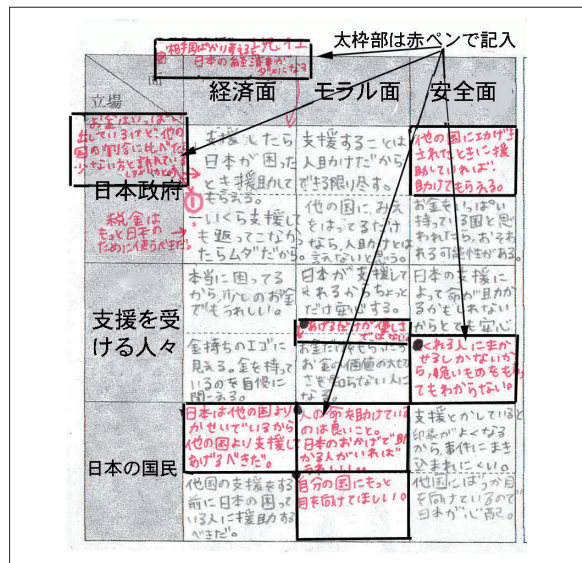 太枠部は赤ペンで記入
相手国ばかり考えると
日本の経済事が
ダメになる
立場
経済面
モラル面
安全面
お金はいっぱい
出しているけど、他の
国の割合に比べたら
少ない方と言われている
日本政府
税金は
もっと日本の
ために使うべきだ。
支援したら
日本が困った
とき援助して
もらえる。
①
いくら支援して
も返ってこなかっ
たらムダだから。
支援することは
人助けだから
できる限り尽す。
他の国に、みえ
をはってるだけ
なら、人助けとは
言えないと思う。
他の国に工げきさ
されたときに援
助していれば
助けてもらえる。
お金をいっぱい
持っている国と思
われたら、おそわ
れる可能性がある。
支援を受
ける人々
本当に困ってる
から、少しのお金
でもうれしい。
金持ちのエゴに
見える。金を持って
いるのを自慢に
聞こえる。
日本が支援して
くれるからちょっと
だけ安心する。
あげるだけが優しさ
ではない
お金だけをもらったら
お金の価値の大切
さを知らない人に
なる。
日本の支援に
よって命が助か
るかもしれない
からとても安心
くれる人にまか
せるしかないか
ら、危いものをもらっ
てもわからない。
日本の国民
日本は他の国より
かせいでいるから
他の国より支援して
あげるべきだ。
他国の支援をする
前に日本の困って
いる人に援助する
べきだ。
人の命を助けている
のは良いこと。
日本のおかげで助
かる人がいれば
うれしい。
自分の国にもっと
目を向けてほしい。
支援とかしていると
印象がよくなる
から、事件にまき
込まれにくい。
他国にばっか目
を向けているので
日本が心配。